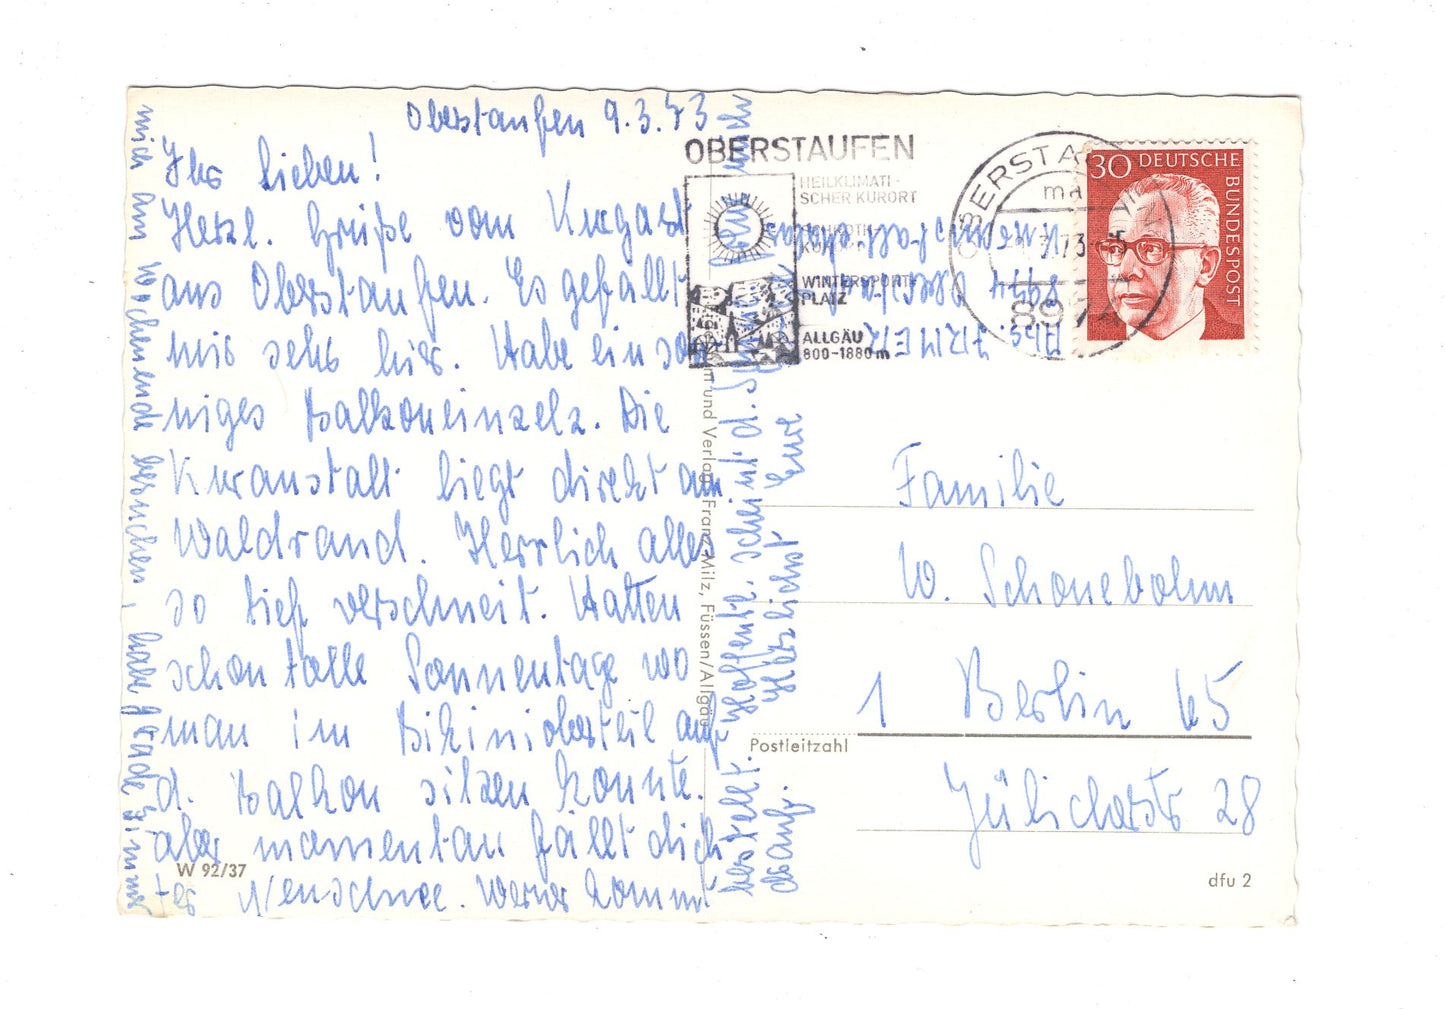 Oberstaufen 9.3.73
Ihr Lieben!
Herzl. Grüße vom Kurgast
aus Oberstaufen. Es gefällt
mir sehr hier. Habe ein son
niges Balkoneinzelz. Die
Kuranstalt liegt direkt am
Waldrand. Herrlich alles
so tief verschneit. Hatten
schon tolle Sonnentage wo
man im Bikinioberteil auf
d. Balkon sitzen konnte.
aber momentan fällt dich
ter Neuschnee. Werner kommt
mich am Wochenende besuchen, habe grade Zimmer
bestellt. Hoffentl. schneit d.
drauf. Herzlichst Eure
Abs. IRMER
8974 Oberstaufen
Kuranstalt
OBERSTAUFEN
HEILKLIMATI-
SCHER KURORT
SCHROTH-
KUR
WINTERSPORT-
PLATZ
ALLGÄU
800-1880 m
OBERSTAUFEN
73
8974
30 DEUTSCHE
BUNDESPOST
und Verlag Franz Milz, Füssen/Allgäu
Familie
W. Schonebohm
1 Berlin 65
Postleitzahl
Jülicherstr 28
W 92/37
dfu 2